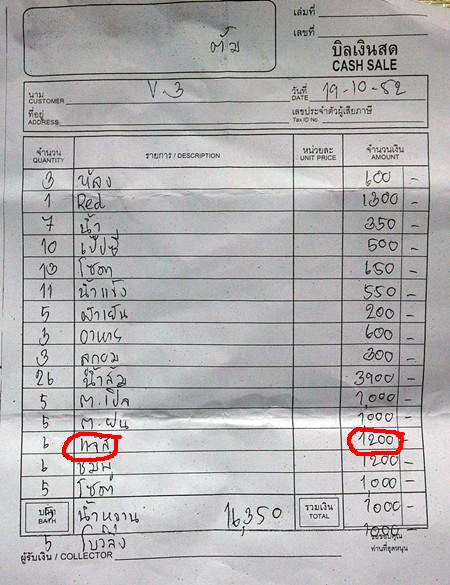 เล่มที่
เลขที่
ตั้ม
บิลเงินสด
CASH SALE
นาม
CUSTOMER
V-3
วันที่
DATE
19-10-52
ที่อยู่
ADDRESS
เลขประจำตัวผู้เสียภาษี
Tax ID No.
จำนวน
QUANTITY
รายการ / DESCRIPTION
หน่วยละ
UNIT PRICE
จำนวนเงิน
AMOUNT
3 600 -
1 Red 1300 -
7 น้ำ 350 -
10 เป๊ปซี่ 500 -
13 โซดา 650 -
11 น้ำแข็ง 550 -
5 ผ้าเย็น 200 -
3 อาหาร 600 -
3 ลูกอม 300 -
26 น้ำส้ม 3900 -
5 ต.เปิ้ล 1,000 -
5 ต.ฝน 1000 -
6 1200 -
6 ชมพู่ 1200 -
5 โซดา 1000 -
5 น้ำหวาน 1000 -
บาท
BATH
16,350
รวมเงิน
TOTAL
5 1000 -
ผู้รับเงิน / COLLECTOR
ขอขอบคุณ
ท่านที่อุดหนุน